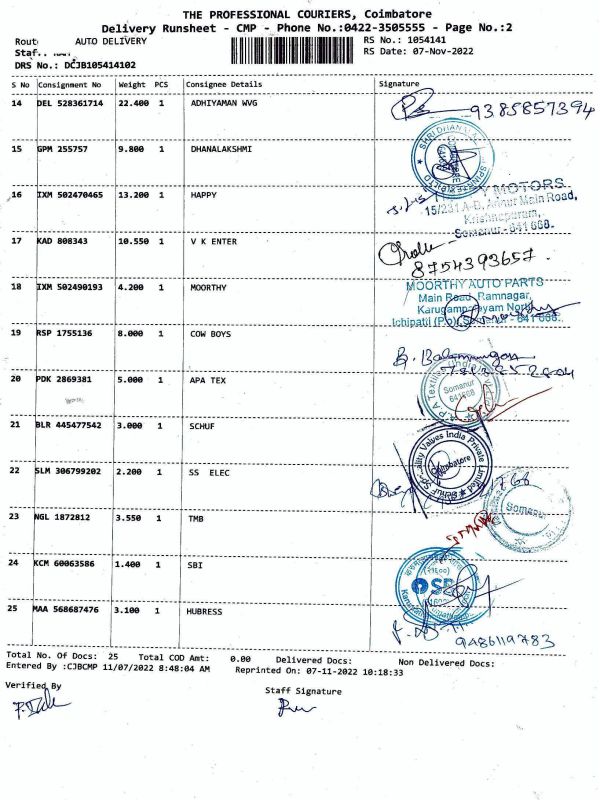 THE PROFESSIONAL COURIERS, Coimbatore
Delivery Runsheet - CMP - Phone No.:0422-3505555 - Page No.:2
Rout AUTO DELIVERY RS No.: 1054141
Staf.. RS Date: 07-Nov-2022
DRS No.: DCJB105414102
S No Consignment No Weight PCS Consignee Details Signature
14 DEL 528361714 22.400 1 ADHIYAMAN WVG 9385857394
15 GPM 255757 9.800 1 DHANALAKSHMI
SHRI DHANA
16 IXM 502470465 13.200 1 HAPPY
MOTORS
15/231 A-B, Annur Main Road,
Krishnapuram,
Somanur - 641 668.
17 KAD 808343 10.550 1 V K ENTER
8754393657.
18 IXM 502490193 4.200 1 MOORTHY
MOORTHY AUTO PARTS
Main Road, Ramnagar,
Karugampalayam North
Ichipatti (P.o), Somanur - 641 668.
19 RSP 1755136 8.000 1 COW BOYS
20 PDK 2869381 5.000 1 APA TEX
Somanur
641668
21 BLR 445477542 3.000 1 SCHUF
Values India Private Limited
Coimbatore
22 SLM 306799202 2.200 1 SS ELEC
Somanur
23 NGL 1872812 3.550 1 TMB
24 KCM 60063586 1.400 1 SBI
SBI
25 MAA 568687476 3.100 1 HUBRESS
9486119783
Total No. Of Docs: 25 Total COD Amt: 0.00 Delivered Docs: Non Delivered Docs:
Entered By :CJBCMP 11/07/2022 8:48:04 AM Reprinted On: 07-11-2022 10:18:33
Verified By Staff Signature